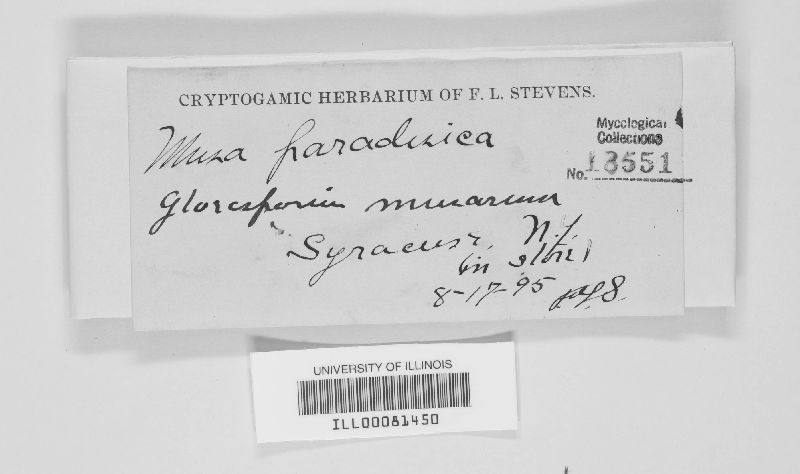 CRYPTOGAMIC HERBARIUM OF F. L. STEVENS.
Musa paradisica
Mycological
Collections
No. 13551
Gloesporium musarum
Syracuse, N.Y.
(in store)
8-17-95
UNIVERSITY OF ILLINOIS
ILL00081450